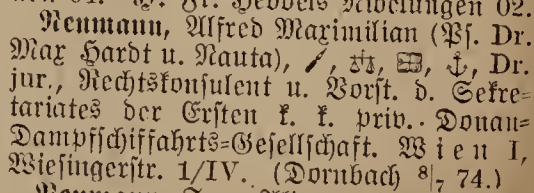 Hebbels Nibelungen 02.
Neumann, Alfred Maximilian (Ps. Dr.
Max Hardt u. Nauta), Dr.
jur., Rechtskonsulent u. Vorst. d. Sekre=
tariates der Ersten k. k. priv. Donau=
Dampfschiffahrts=Gesellschaft. Wien I,
Wiesingerstr. 1/IV. (Dornbach 8/7 74.)